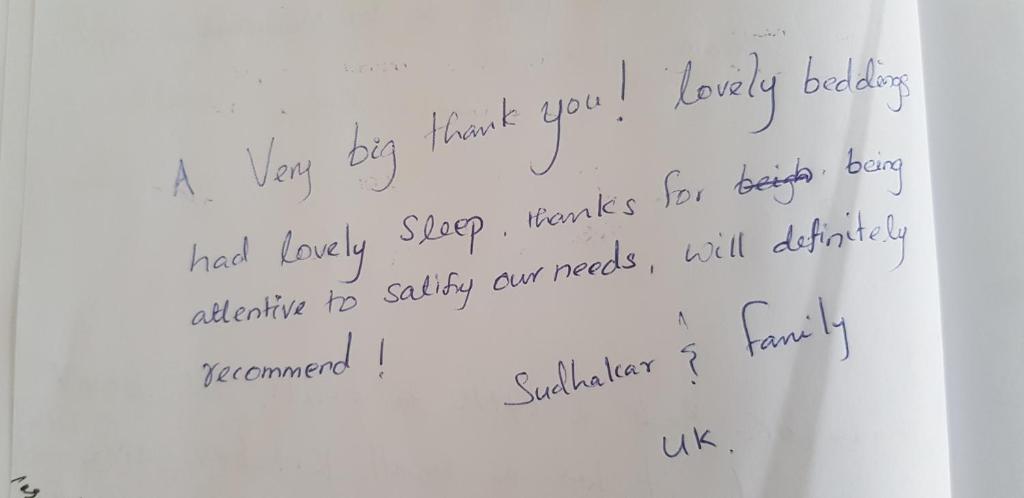 A Very big thank you! lovely beddings
had lovely sleep. thanks for being
attentive to satify our needs, will definitely
recommend!
Sudhakar & family
UK.